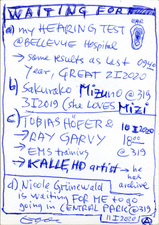 WAITING FOR
a) my HEARING TEST
@BELLEVUE Hospital
→ Same results as last
Year, GREAT 2I2020
b) Sakurako Mizuno @319
3I2019 (she LOVES MIZI
c) TOBIAS HÖFER &
→ RAY GARVY
→ EMS training
→ KALLE HD artist
10 I 2020
1800
@319
→ he has
archive
d) Nicole Grünewald
is WAITING FOR ME to go
going in CENTRAL PARK @319
11I2020
A